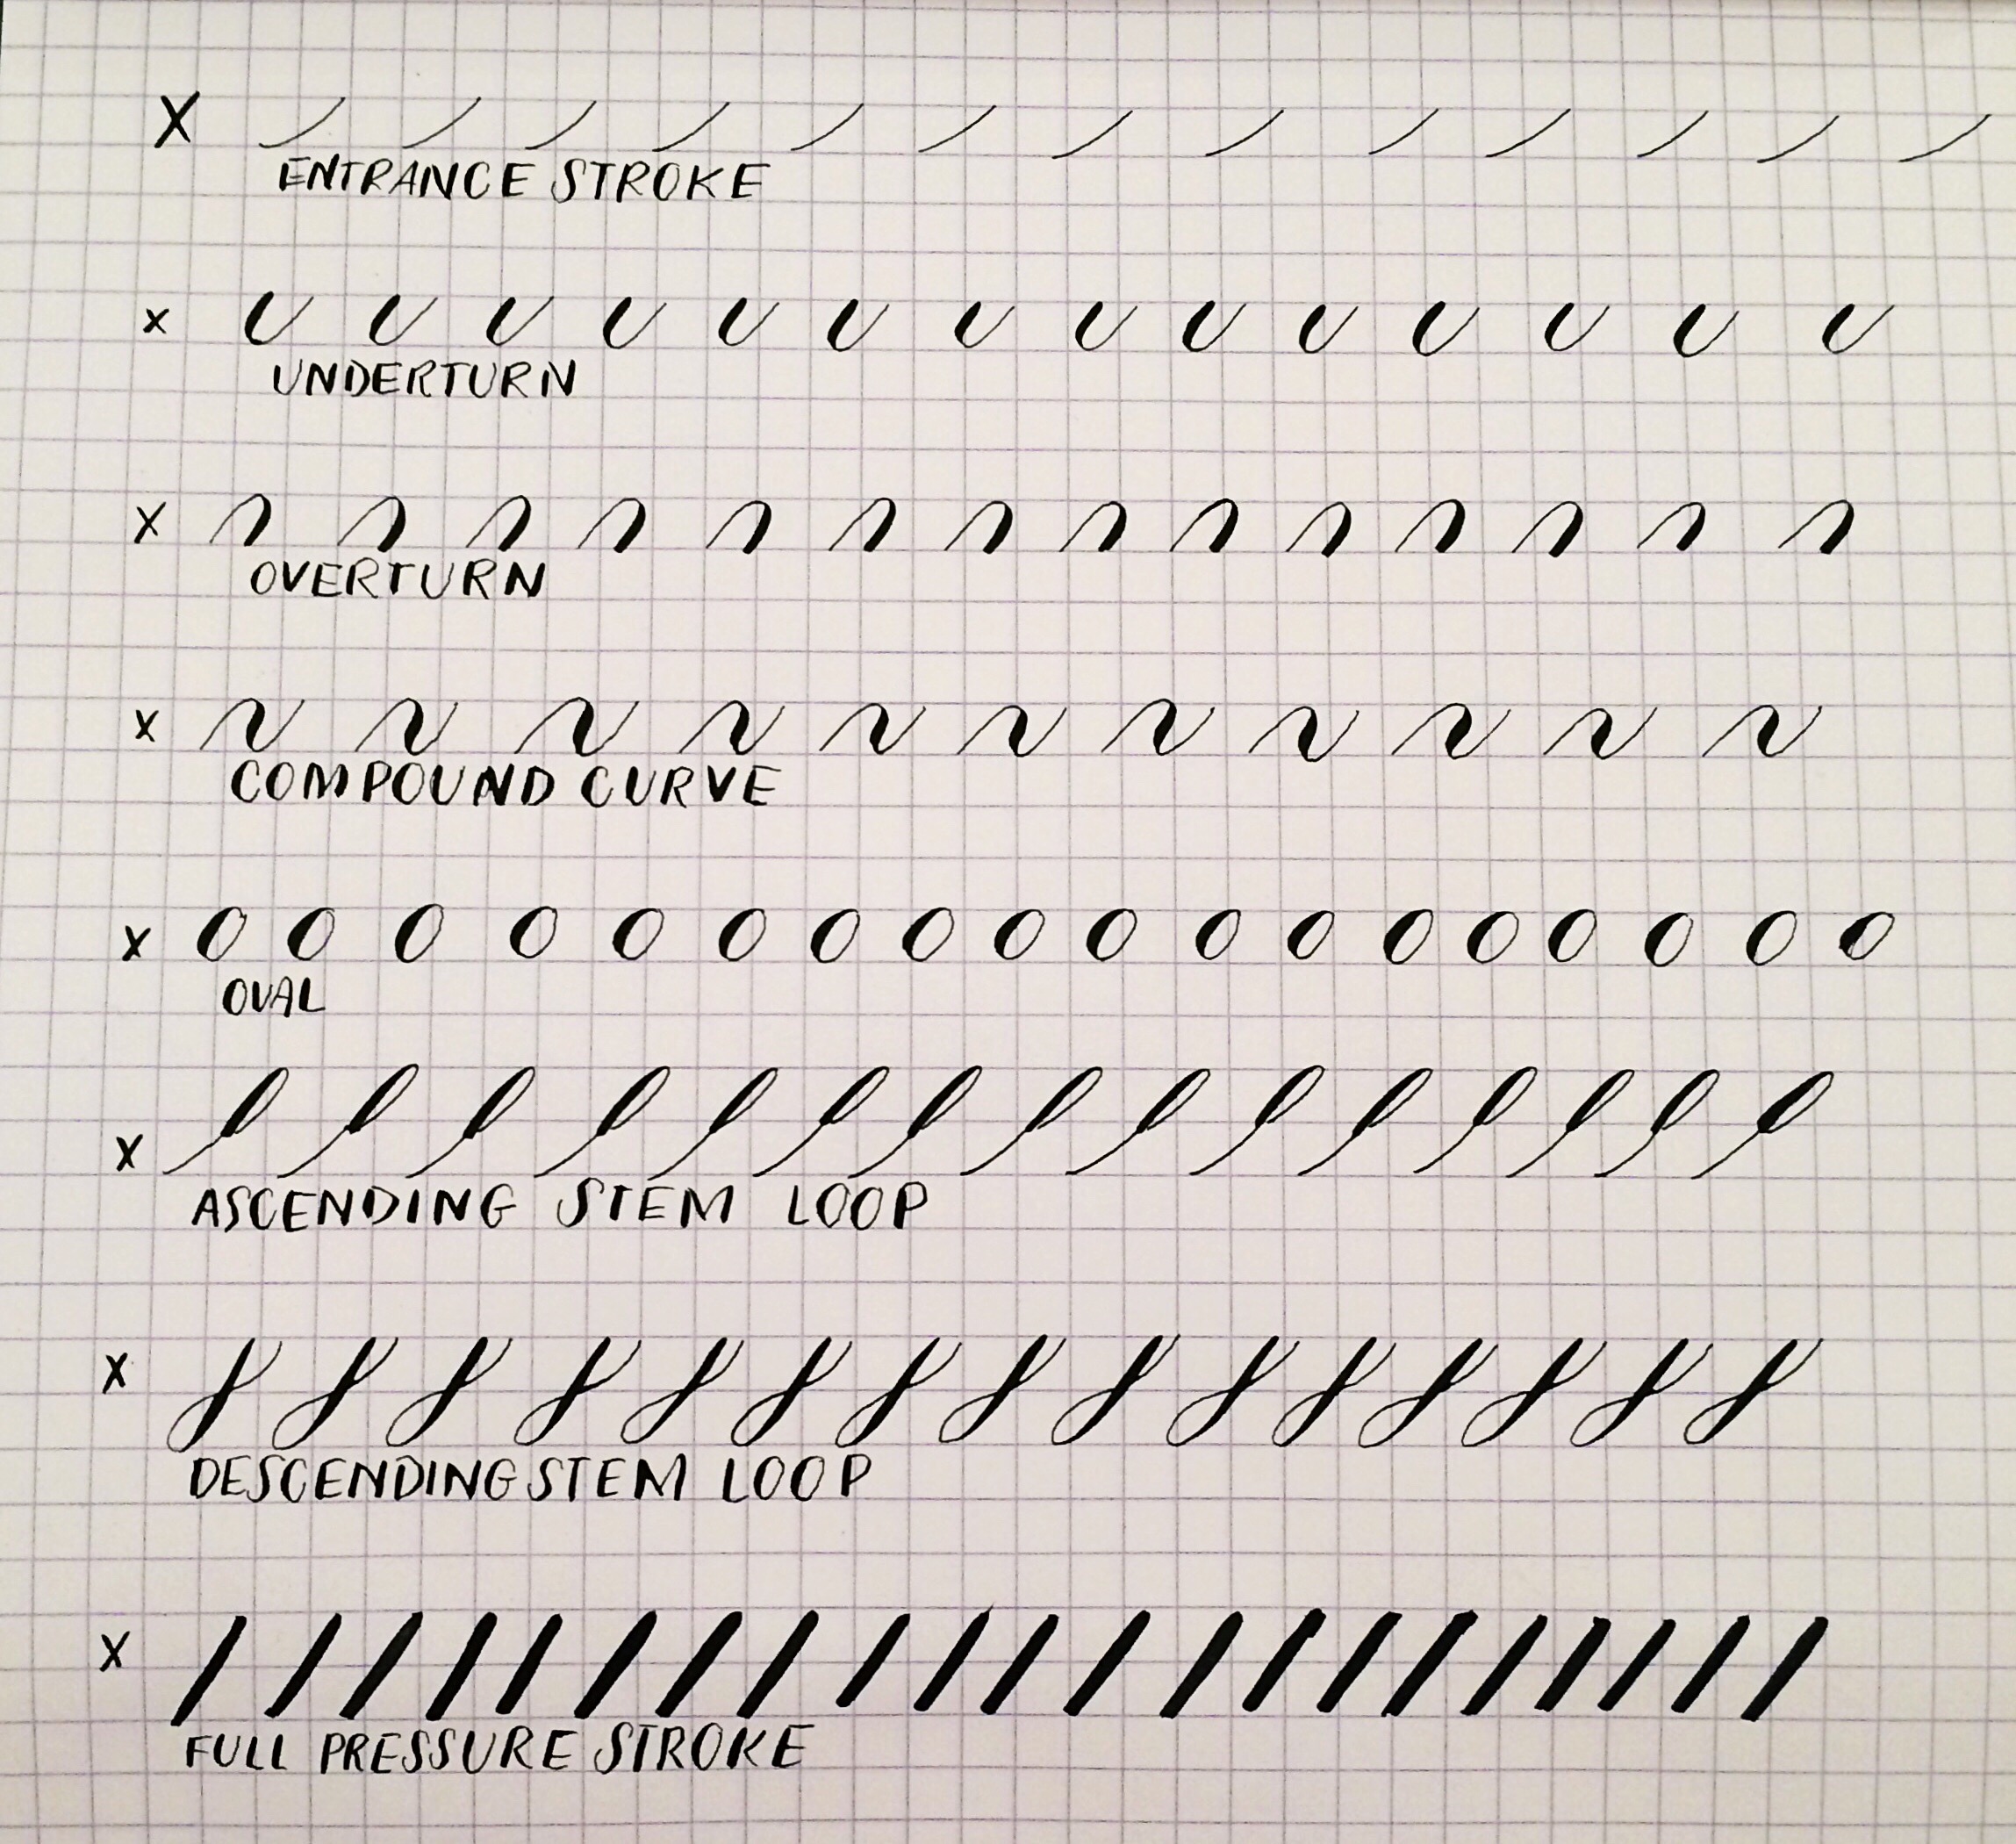 X
ENTRANCE STROKE
x
UNDERTURN
X
OVERTURN
x
COMPOUND CURVE
x
OVAL
x
ASCENDING STEM LOOP
X
DESCENDING STEM LOOP
X
FULL PRESSURE STROKE